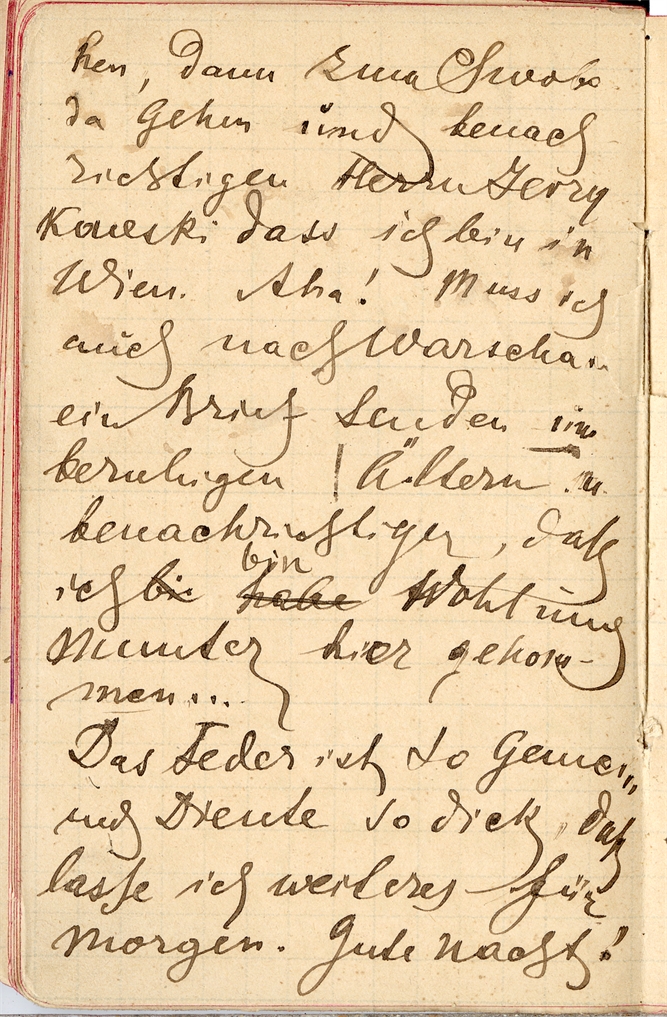 hen, dann zum Swobo
da Gehen und benach
richtigen Herrn Jerry
Kowski dass ich bin in
Wien. Aha! Muss ich
auch nach Warschau
ein Brief senden um
beruhigen | Ältern zu
benachrichtigen, daß
ich bi habe bin Wohl und
Munter hier gekom-
men...
Das Feder ist so Gemein
und Diente so dick, daß
lasse ich weiteres für
morgen. Gute Nacht!